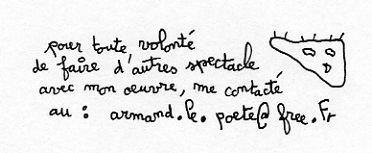 pour toute volonté
de faire d'autres spectacle
avec mon oeuvre, me contacté
au : armand.le.poete@free.Fr